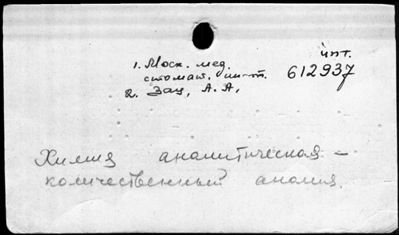 чит.
1. Моск. мед.
стомат. ин-т. 612937
2. Зац, А. А,
Химия аналитическая –
количественный анализ.